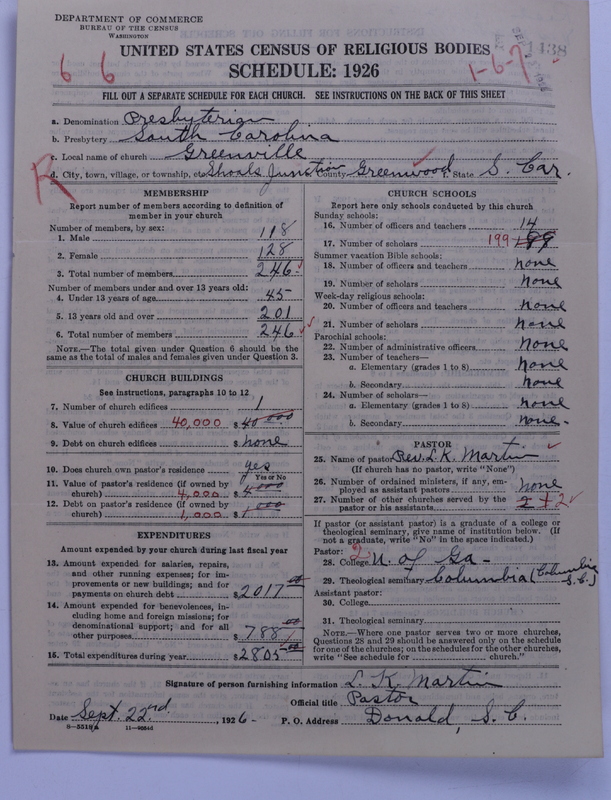 DEPARTMENT OF COMMERCE
BUREAU OF THE CENSUS
WASHINGTON
UNITED STATES CENSUS OF RELIGIOUS BODIES
SCHEDULE: 1926
6 6
1-6-7
FILL OUT A SEPARATE SCHEDULE FOR EACH CHURCH. SEE INSTRUCTIONS ON THE BACK OF THIS SHEET
a. Denomination Presbyterian
b. Presbytery South Carolina
c. Local name of church Greenville
d. City, town, village, or township, etc Shoals Junction County Greenwood State S. Car.
R
MEMBERSHIP
Report number of members according to definition of
member in your church
Number of members, by sex:
1. Male 118
2. Female 128
3. Total number of members 246
Number of members under and over 13 years old:
4. Under 13 years of age 45
5. 13 years old and over 201
6. Total number of members 246
NOTE.—The total given under Question 6 should be the
same as the total of males and females given under Question 3.
CHURCH BUILDINGS
See instructions, paragraphs 10 to 12
7. Number of church edifices 1
8. Value of church edifices 40,000 $ 40 000
9. Debt on church edifices $ none
10. Does church own pastor's residence yes
Yes or No
11. Value of pastor's residence (if owned by
church) 4,000 $ 4 000
12. Debt on pastor's residence (if owned by
church) 1,000 $ 1 000
EXPENDITURES
Amount expended by your church during last fiscal year
13. Amount expended for salaries, repairs,
and other running expenses; for im-
provements or new buildings; and for
payments on church debt $ 2017 00
14. Amount expended for benevolences, in-
cluding home and foreign missions; for
denominational support; and for all
other purposes $ 788 00
15. Total expenditures during year $ 2805 00
CHURCH SCHOOLS
Report here only schools conducted by this church
Sunday schools:
16. Number of officers and teachers 14
17. Number of scholars 199 199
Summer vacation Bible schools:
18. Number of officers and teachers none
19. Number of scholars none
Week-day religious schools:
20. Number of officers and teachers none
21. Number of scholars none
Parochial schools:
22. Number of administrative officers none
23. Number of teachers—
a. Elementary (grades 1 to 8) none
b. Secondary none
24. Number of scholars—
a. Elementary (grades 1 to 8) none
b. Secondary none-
PASTOR
25. Name of pastor Rev. L. K. Martin
(If church has no pastor, write "None")
26. Number of ordained ministers, if any, em-
ployed as assistant pastors none
27. Number of other churches served by the
pastor or his assistants 2 + 2
If pastor (or assistant pastor) is a graduate of a college or
theological seminary, give name of institution below. (If
not a graduate, write "No" in the space indicated.)
Pastor: 2
28. College U. of Ga -
29. Theological seminary Columbia (Columbia
S. C.)
Assistant pastor:
30. College
31. Theological seminary
NOTE.—Where one pastor serves two or more churches,
Questions 28 and 29 should be answered only on the schedule
for one of the churches; on the schedules for the other churches,
write "See schedule for church."
Signature of person furnishing information L. K. Martin
Official title Pastor
Date Sept. 22nd. , 1926- P. O. Address Donald, S. C.
8-5519a 11-9554d